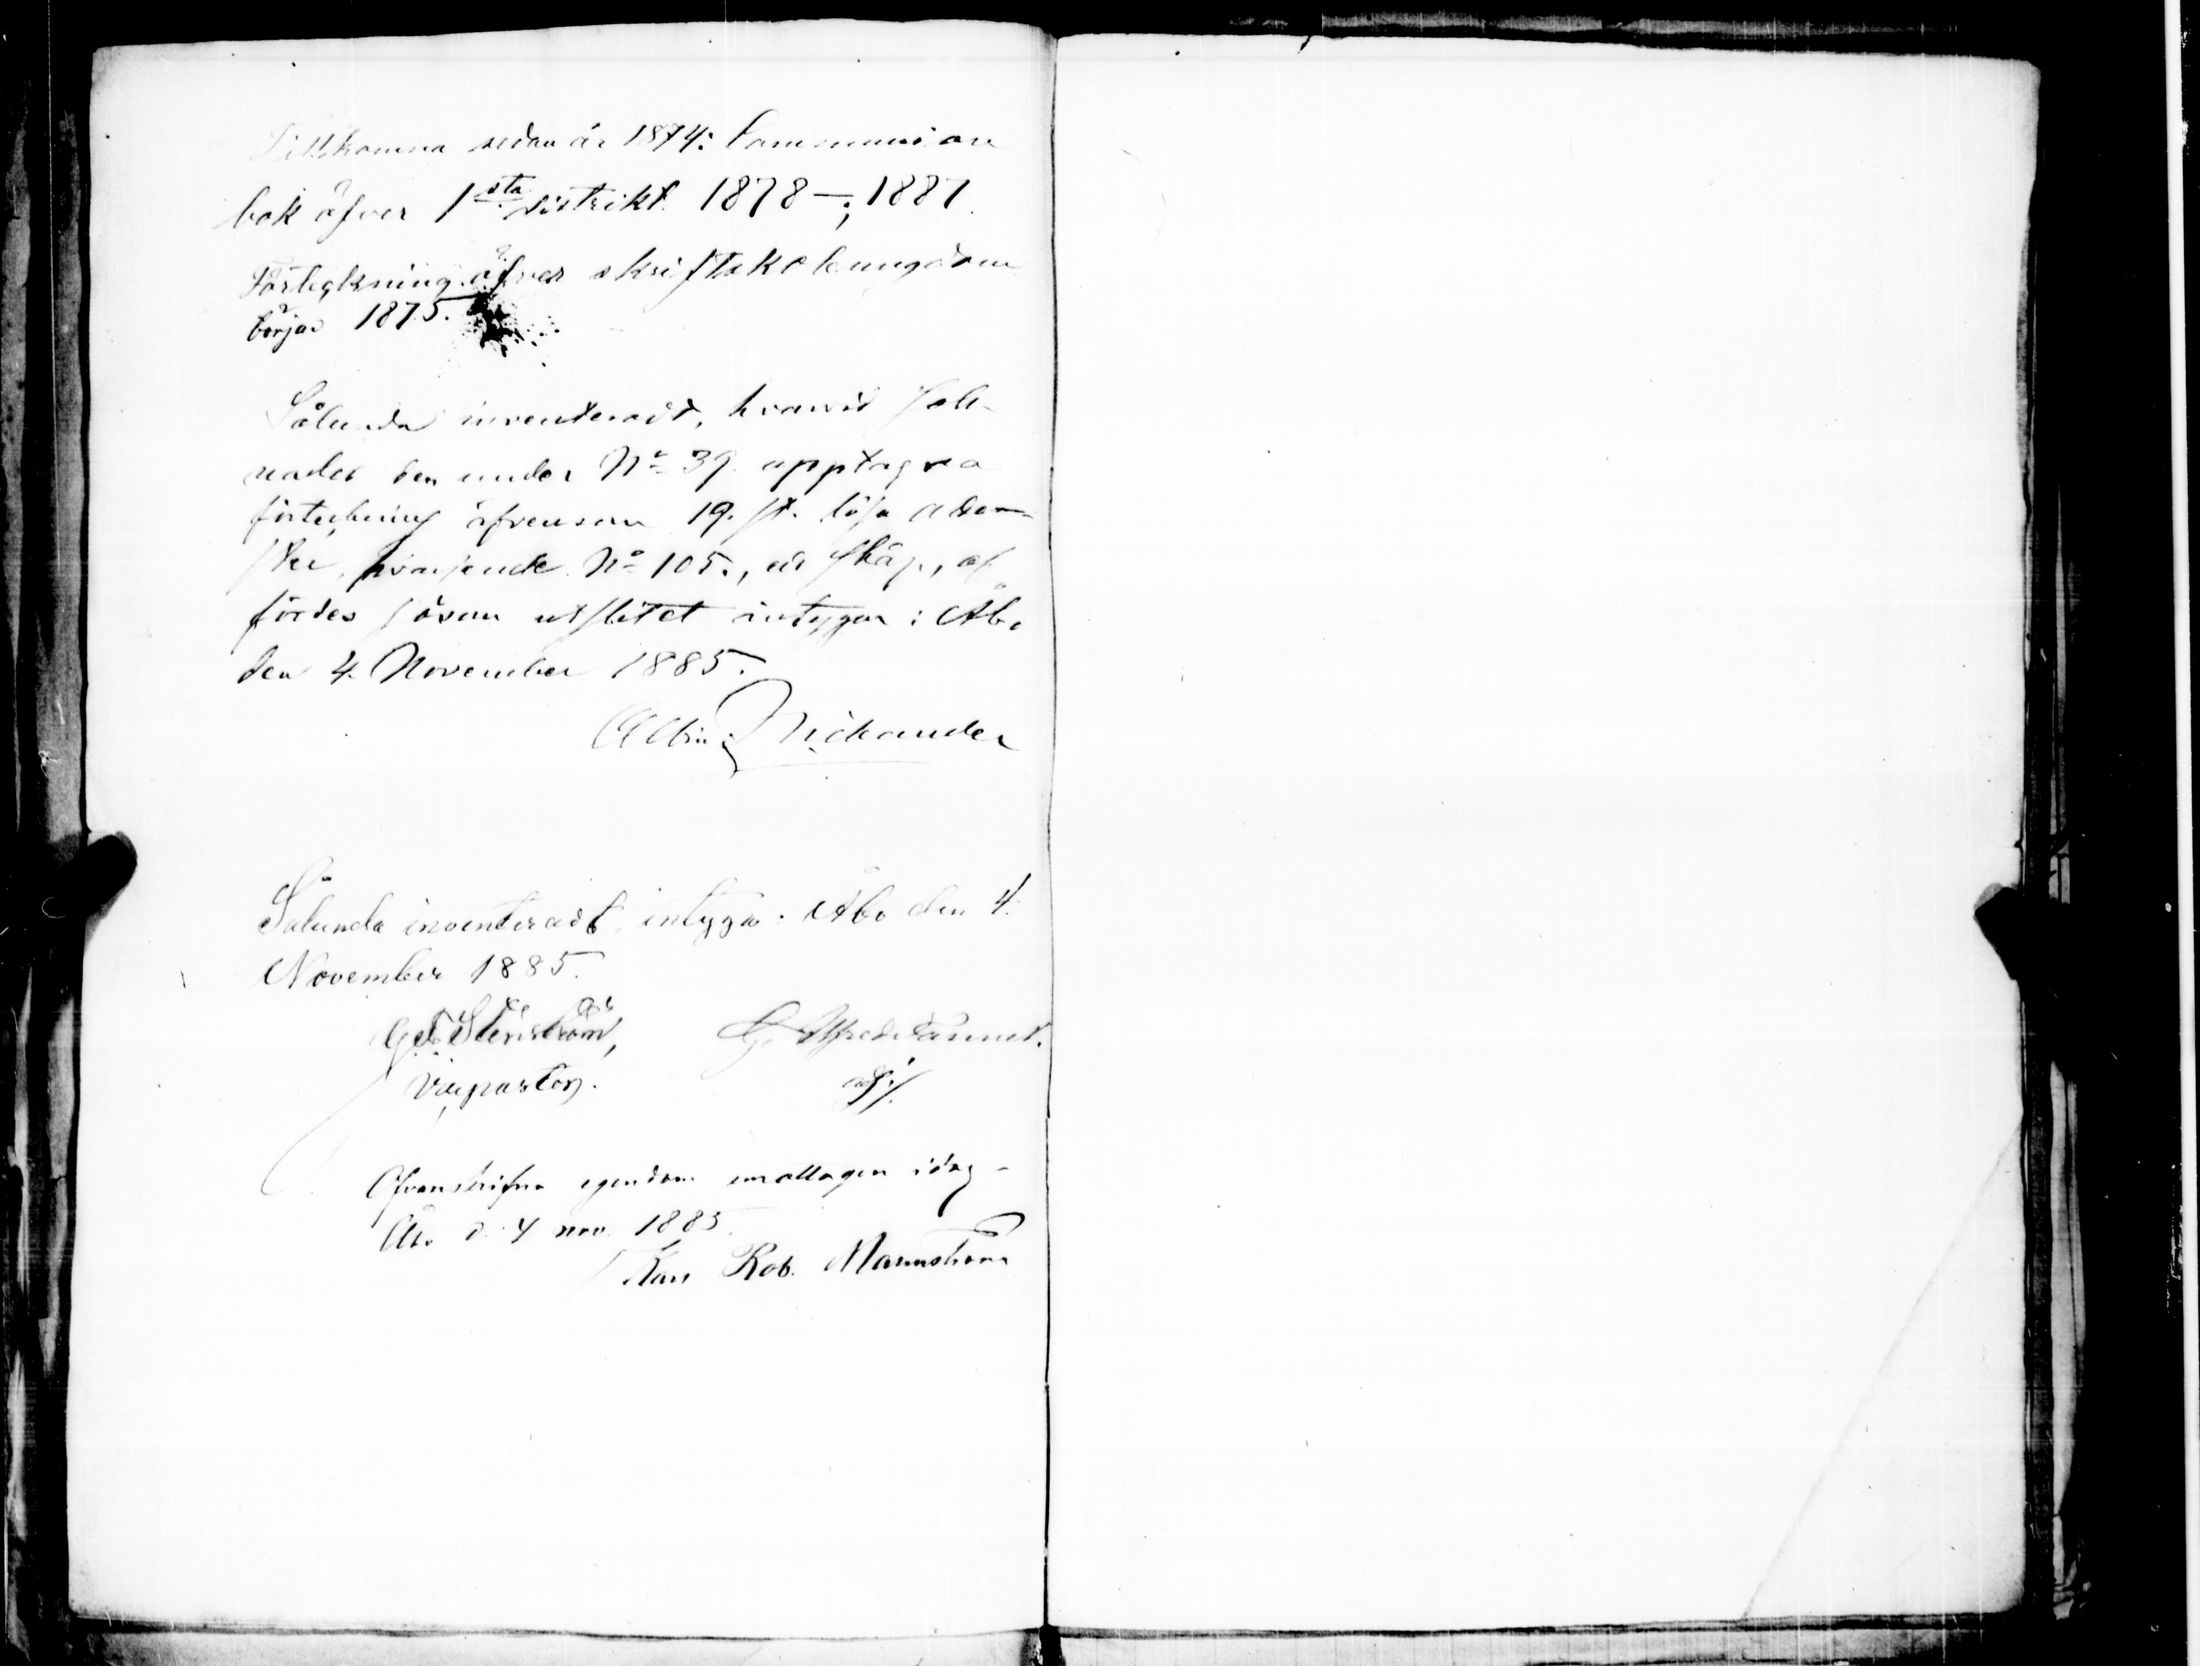 Tillkomna sedan år 1874: Communion
bok öfver 1sta distrikt 1878—; 1887.
Förtekning öfver skriftskoleungdom
börjad 1875.
Sålunda inventeradt, hvarvid sak-
nades den under No 39 upptagna
förteckning äfvensom 19. st. lösa
hvarjemte No 105., ett skåp, af
fördes såsom utslitet intygar: Åbo
den 4. November 1885.
Albin Nickander
Sålunda inventeradt, intyga. Åbo den 4.
November 1885.
Stenström,
Vicepastor.
G. Alfred
adj.
Ofvanskrifna egendom emottagen idag -
Åbo d. 4 nov. 1885.
Karl Rob. Malmström